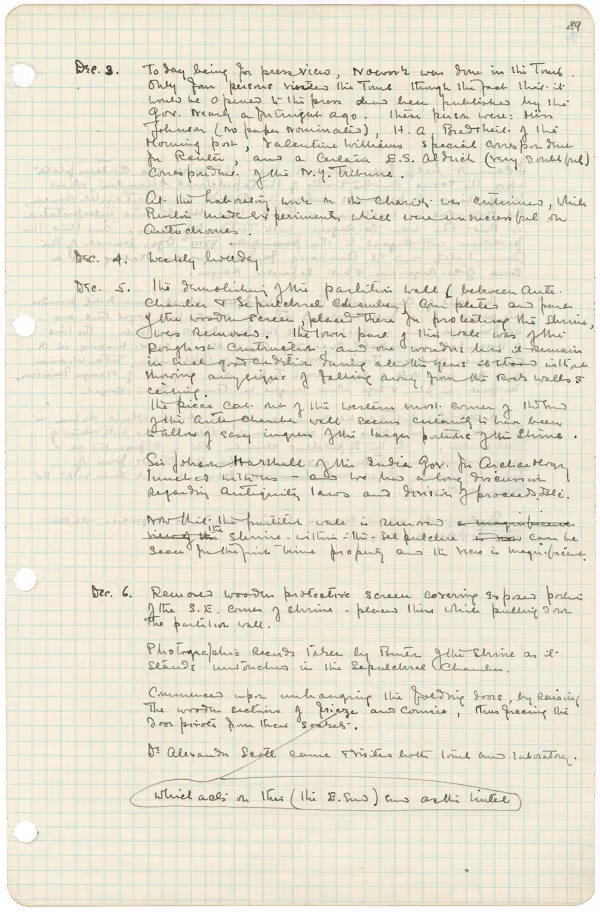 89
Dec. 3. Today being for press view, No work was done in the Tomb.
Only four persons visited the Tomb though the fact that it
would be opened to the press had been published by the
Gov. nearly a fortnight ago. These persons were: Miss
Johnson (no paper nominated), H. A. Bradstreet of the
Morning post, Valentine Williams special correspondent
for Reuter, and a certain E.S. Aldrich (very doubtful)
correspondent of the N.Y. Tribune.
At the Laboratory work on the Chariots was continued, while
Burton made experiments which were unsuccessful on
Autochromes.
Dec. 4. Weekly holiday
Dec. 5. The demolishing of the partition wall (between Ante-
chamber & Sepulchral Chamber) completed and part
of the wooden screen, placed there for protecting the shrine,
was removed. The lower part of this wall was of the
roughest construction, and one wonders how it remain
in such good condition during all the years it stood without
showing any signs of falling away from the rock walls &
ceiling.
The piece cut out of the western most corner of the end
of the Ante Chamber wall seems certainly to have been
to allow of easy ingress of the larger portions of the Shrine.
Sir John Marshall of the India Gov. for Archaeology
lunched with us - and we had a long discussion
regarding Antiquity laws and division of proceeds, etc.
Now that the partition wall is removed a magnificent
view of the the Shrine-within-the-Sepulchre is now can be
seen for the first time properly and the view is magnificent.
Dec. 6. Removed wooden protective screen covering exposed portion
of the S.E. corner of shrine - placed there while pulling down
the partition wall.
Photographic records taken by Burton of the Shrine as it
stands untouched in the Sepulchral Chamber.
Commenced upon unhanging the folding doors, by raising
the wooden sections of frieze and Cornice, thus freeing the
door pivots from their sockets.
Dr Alexander Scott came & visited both tomb and laboratory.
which acts on this (the E. End) end as the lintel